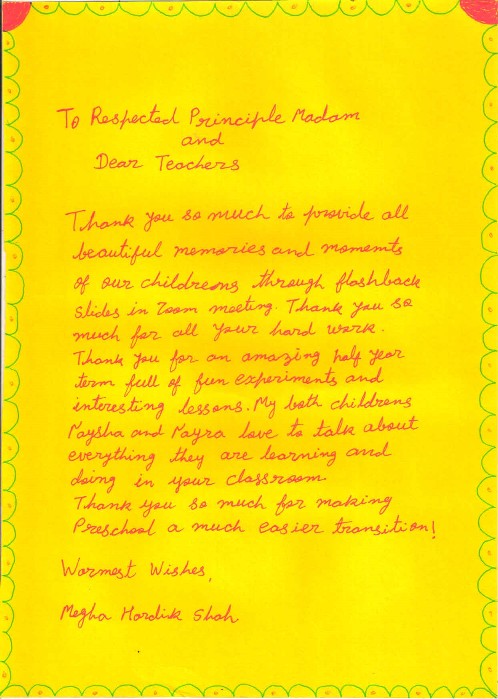 To Respected Principle Madam
and
Dear Teachers
Thank you so much to provide all
beautiful memories and moments
of our childrens through flashback
slides in zoom meeting. Thank you so
much for all your hard work.
Thank you for an amazing half year
term full of fun experiments and
interesting lessons. My both childrens
Naysha and Nayra love to talk about
everything they are learning and
doing in your classroom.
Thank you so much for making
Preschool a much easier transition!
Warmest Wishes,
Megha Hardik Shah